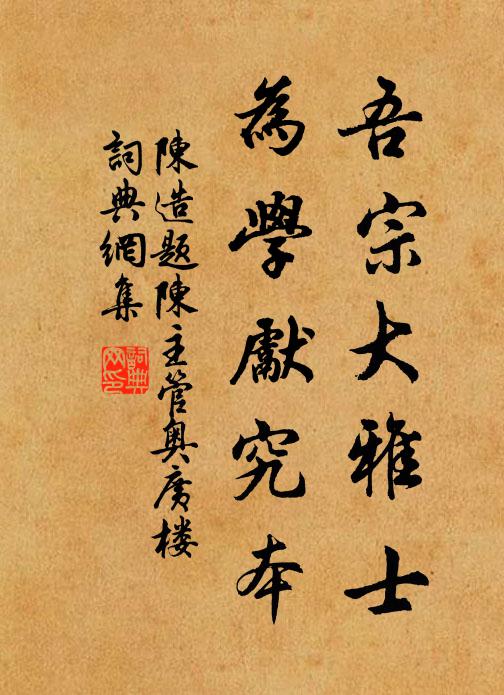 吾宗大雅士
為學獻究本
陳造題陳主管奥廣楼
詞典網集
詞典網印